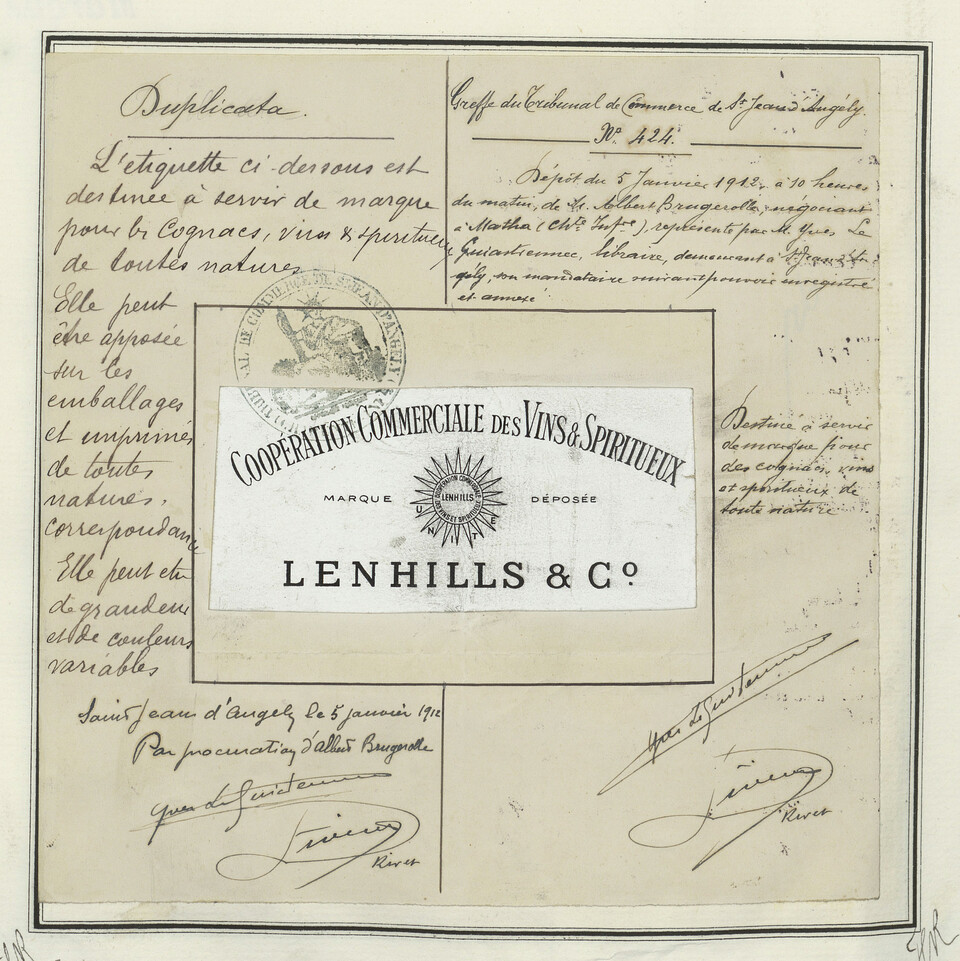 Duplicata.
L'étiquette ci-dessous est
destinée à servir de marque
pour les Cognacs, vins & spiritueux
de toutes natures
Elle peut
être apposée
sur les
emballages
et imprimés
de toutes
natures.
correspondance
Elle peut être
de grandeur
et de couleurs
variables
Saint Jean d'Angely le 5 janvier 1912
Par procuration d'Albert Brugerolle
Rivet
Greffe du Tribunal de Commerce de St Jean d'Angély.
No. 424.
Dépôt du 5 Janvier 1912, à 10 heures
du matin, de M. Albert Brugerolle, négociant
à Matha (Chte Infre), représenté par M. Yves Le
libraire, demeurant à St Jean d'An-
gély, son mandataire suivant pouvoir enregistré
et annexé
TRIBUNAL DE COMMERCE DE ST JEAN D'ANGELY
COOPÉRATION COMMERCIALE DES VINS & SPIRITUEUX
MARQUE DÉPOSÉE
COOPÉRATION COMMERCIALE
LENHILLS
DES VINS ET SPIRITUEUX
UNITE
LENHILLS & Co
Destiné à servir
de marque pour
des cognacs, vins
et spiritueux de
toute nature
Rivet